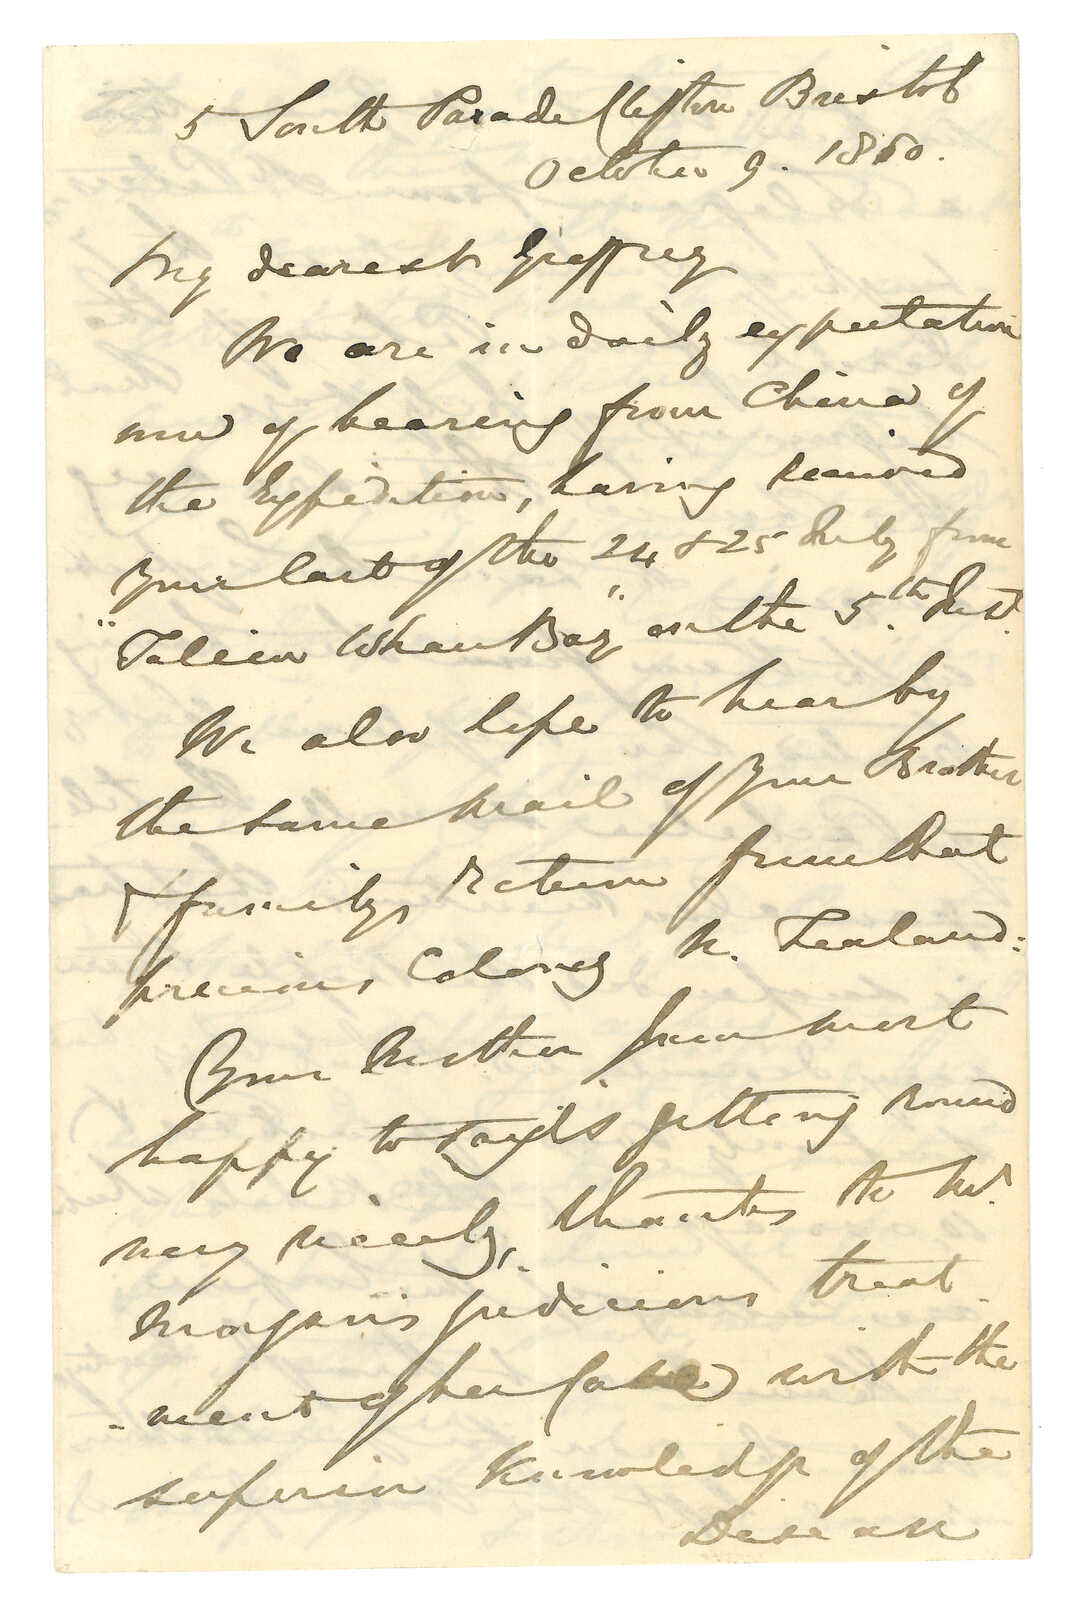 5 South Parade Clifton Bristol
October 9. 1860.
My dearest Geoffrey
We are in daily expectation
now of hearing from China of
the Expedition, having received
your last of the 24 & 25 July from
"Talien Whan Bay" on the 5.th Inst.
We also hope to hear by
the same mail of your Brother
& family's return from that
precious Colony N. Zealand:
Your Mother from most
happy to say is getting round
very nicely, thanks to Mr.
Morgan's judicious treat
-ment of her Case) with the
superior Knowledge of the
Disease